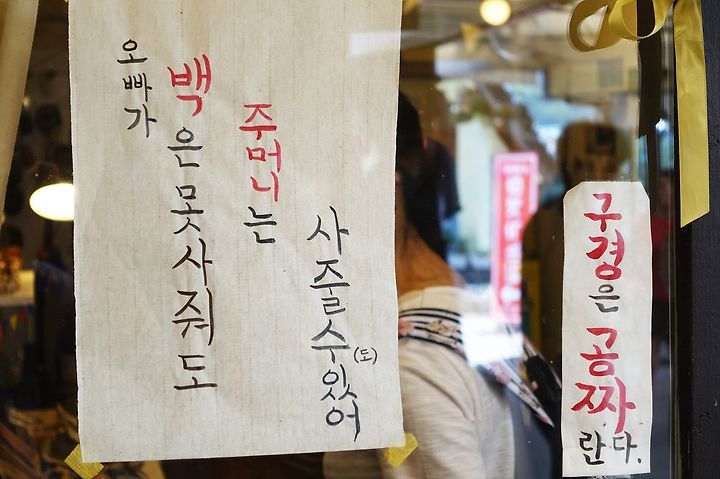 오빠가
백은못사줘도
주머니는
사줄수(도)있어
구경은 공짜
란다.